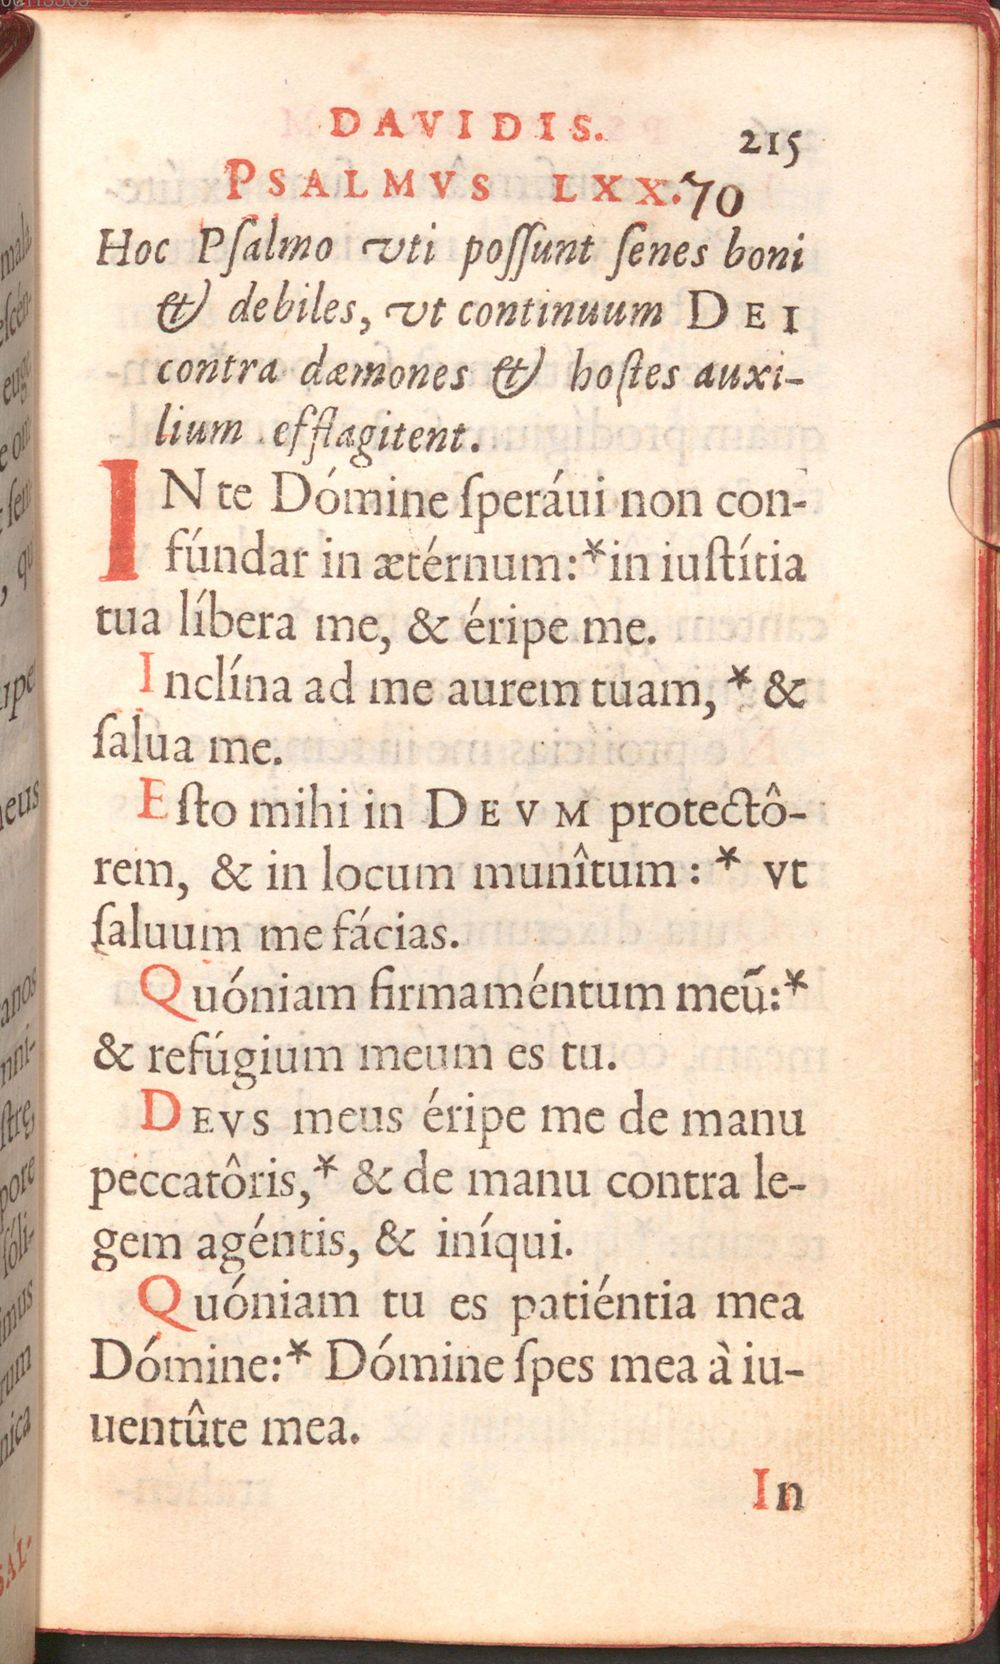 DAVIDIS. 215
PSALMVS LXX. 70
Hoc Pſalmo vti poſſunt ſenes boni
& debiles, vt continuum DEI
contra dæmones & hoſtes auxi-
lium efflagitent.
IN te Dómine ſperáui non con-
fúndar in ætérnum:* in iuſtítia
tua líbera me, & éripe me.
Inclína ad me aurem tuam, * &
ſalua me.
Eſto mihi in DEVM protectô-
rem, & in locum munîtum : * vt
ſaluum me fácias.
Quóniam firmaméntum meũ:*
& refúgium meum es tu.
DEVS meus éripe me de manu
peccatôris,* & de manu contra le-
gem agéntis, & iníqui.
Quóniam tu es patiéntia mea
Dómine:* Dómine ſpes mea à iu-
uentûte mea.
In